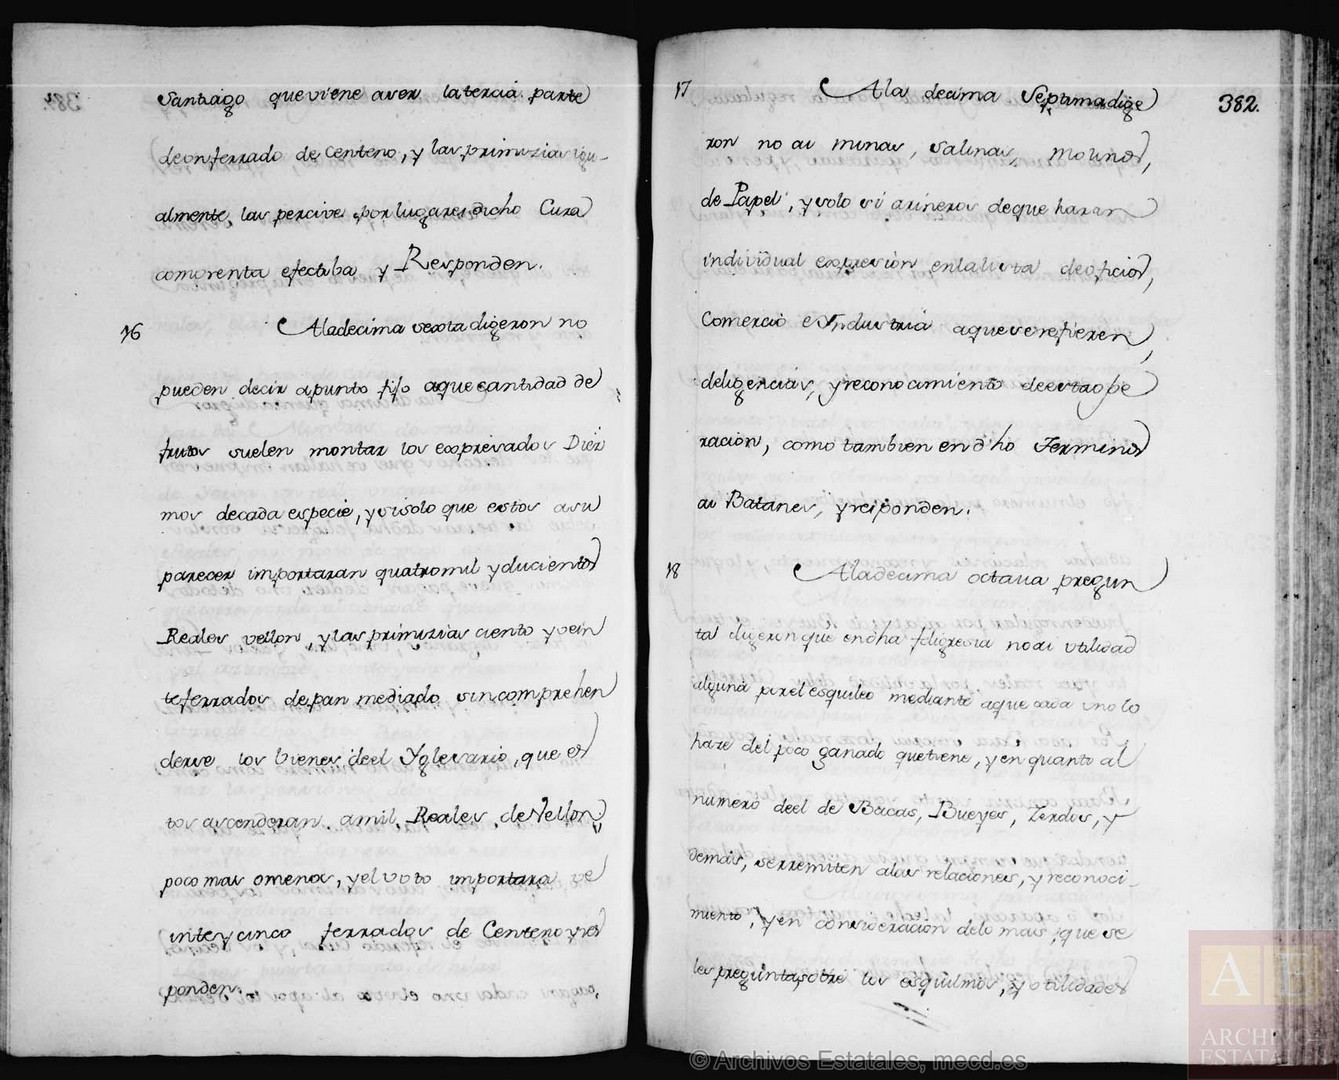 Santiago que viene aver latercia parte
deonferrado de Centeno, y las primizias igu-
almente las percive por lugares dicho Cura
comorenta efectiba y Responden.
16 Aladecima sexta digeron no
pueden decir apunto fijo aque cantidad de
frutos suelen montar los expresados Diez
mos decada especie, y si solo que estos asu
parecer importaran quatromil yducientos
Reales vellon, y las primizias ciento y vein
te ferrados depan mediado sin comprehen
derse los vienes deel Yglesario, que es
tos ascenderan amil Reales de Vellon,
poco mas omenos, y el voto importara ve
inte y cinco ferrados de Centeno y res
ponden.
382.
17 Ala decima Septima dige
ron no ai minas, salinas, Molinos,
de Papel, y solo si arineros de que haran
individual expresion enlalista deoficios,
Comercio e Yndustria aqueserefieren,
deligencias, y reconocimiento deestaope
racion, como tambien en dho Termino
ai Batanes, y responden.
18 Aladecima octaua pregun
ta digeron que endha feligresia no ai utilidad
alguna por el esquileo mediante aque cada uno lo
haze del poco ganado quetiene, y en quanto al
numero deel de Bacas, Bueyes, Zerdos, y
demas, se rremiten alas relaciones, y reconoci-
miento, y en consideracion delo mas, que se
les pregunta sobre los esquilmos, y utilidades
© Archivos Estatales, mecd.es
AE
ARCHIVOS
ESTATALES